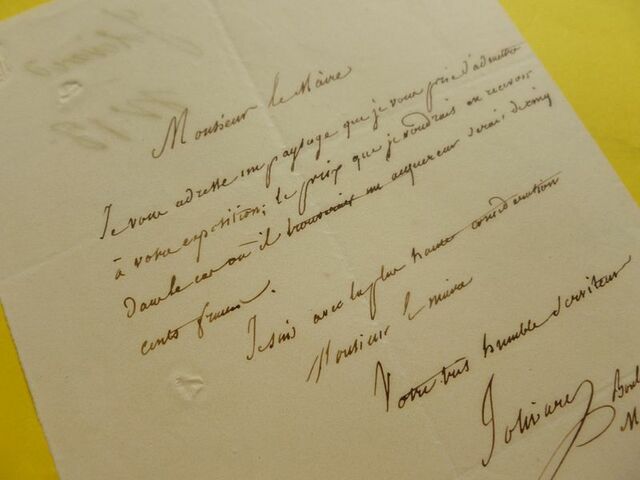 Monsieur le Maire
Je vous adresse un paysage que je vous prie d'admettre
à votre exposition; le prix que je voudrais en recevoir
dans le cas où il trouverait un acquereur serait de cinq
cents francs.
Je suis avec la plus haute consideration
Monsieur le maire
Votre très humble serviteur
Jolivard